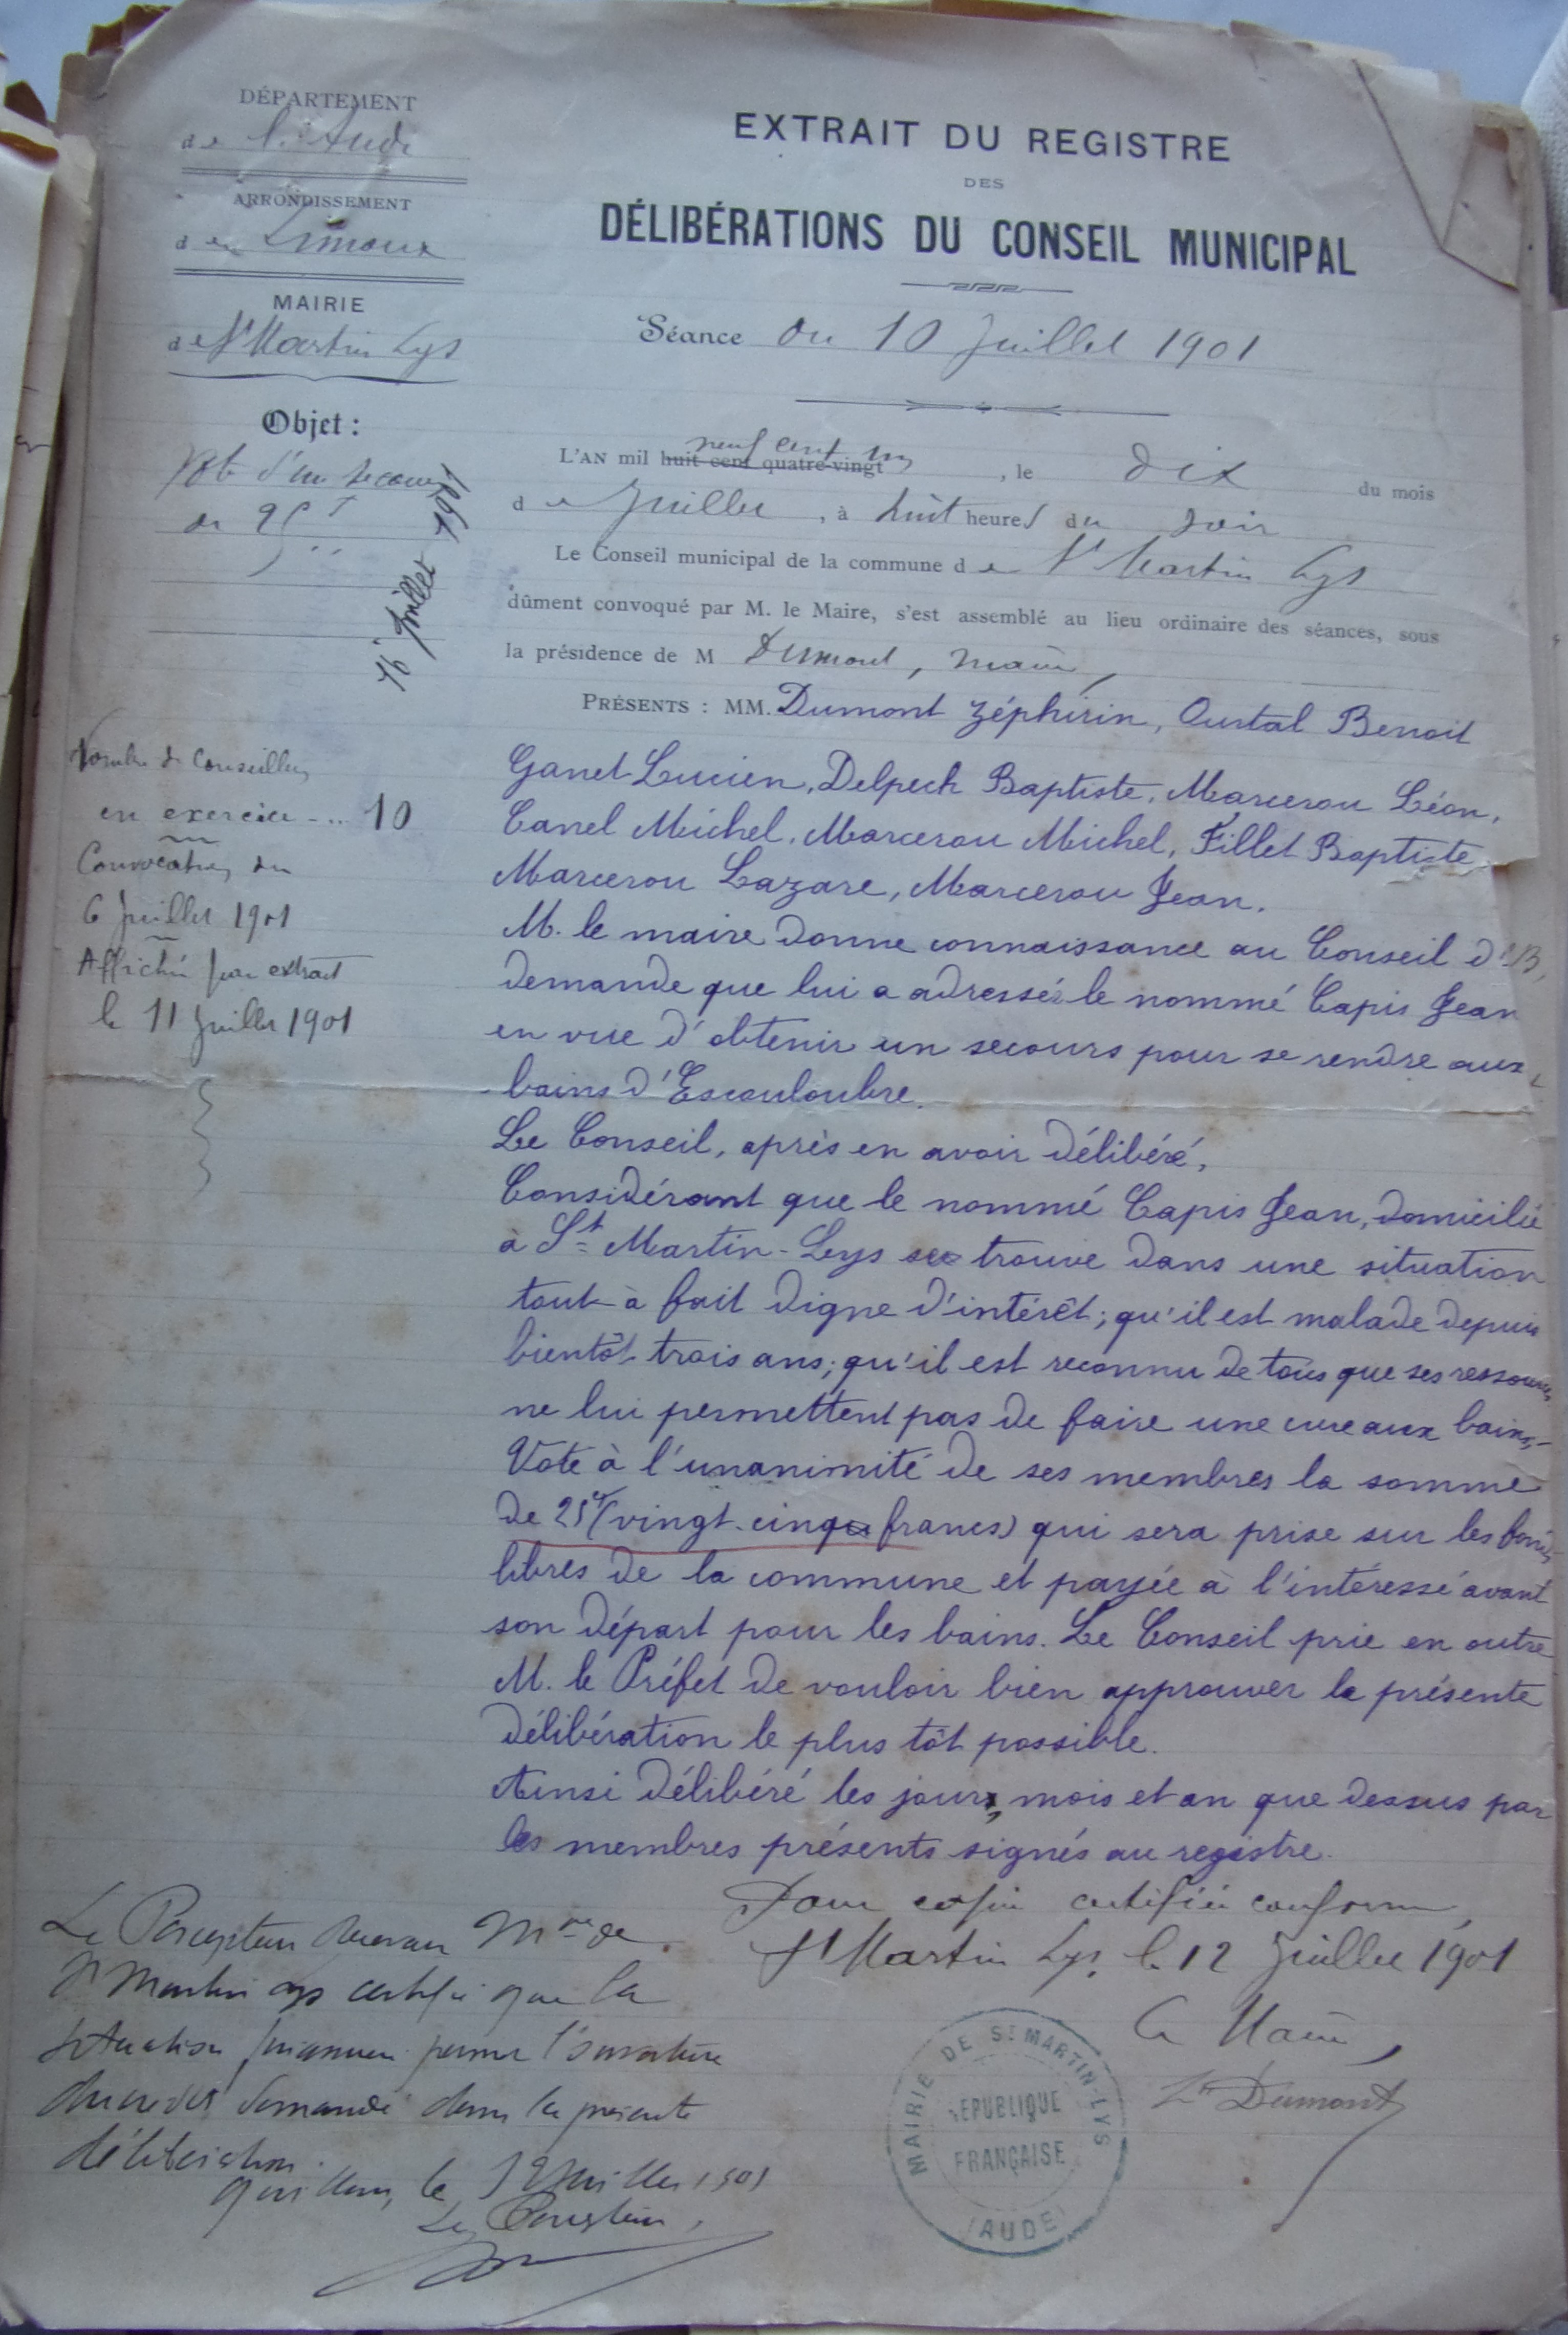 DÉPARTEMENT
de l'Aude
ARRONDISSEMENT
de Limoux
MAIRIE
de St Martin Lys
Objet :
Vote d'un secours
de 25 f
16 Juillet 1901
Nombre de Conseillers
en exercice - ... 10
Convocation du
6 Juillet 1901
Affiché par extrait
le 11 Juillet 1901
EXTRAIT DU REGISTRE
DES
DÉLIBÉRATIONS DU CONSEIL MUNICIPAL
Séance du 10 Juillet 1901
neuf cent un
L'AN mil huit cent quatre-vingt , le dix du mois
de Juillet , à huit heures du soir
Le Conseil municipal de la commune de St Martin Lys
dûment convoqué par M. le Maire, s'est assemblé au lieu ordinaire des séances, sous
la présidence de M Dumont, maire,
PRÉSENTS : MM. Dumont Zéphirin, Oustal Benoit
Ganet Lucien, Delpech Baptiste, Marcerou Léon,
Canel Michel, Marcerou Michel, Fillet Baptiste
Marcerou Lazare, Marcerou Jean.
M. le maire donne connaissance au Conseil d'
demande que lui a adressée le nommé Capis Jean
en vue d'obtenir un secours pour se rendre aux
bains d'Escouloubre.
Le Conseil, après en avoir délibéré,
Considérant que le nommé Capis Jean, domicilié
à St Martin-Lys se trouve dans une situation
tout à fait digne d'intérêt ; qu'il est malade depuis
bientôt trois ans ; qu'il est reconnu de tous que ses ressources
ne lui permettent pas de faire une cure aux bains,-
Vote à l'unanimité de ses membres la somme
de 25f (vingt-cinq francs) qui sera prise sur les fonds
libres de la commune et payée à l'intéressé avant
son départ pour les bains. Le Conseil prie en outre
M. le Préfet de vouloir bien approuver la présente
délibération le plus tôt possible.
Ainsi délibéré les jours, mois et an que dessus par
les membres présents signés au registre.
Pour copie certifiée conforme,
St Martin Lys, le 12 Juillet 1901
Le Maire,
Zn Dumont
MAIRIE DE ST MARTIN-LYS
RÉPUBLIQUE
FRANÇAISE
(AUDE)
Le Percepteur Receveur Mal de
St Martin Lys certifie que la
situation financière permet l'ouverture
du crédit demandé dans la présente
délibération.
Quillan, le 12 Juillet 1901
Le Percepteur,